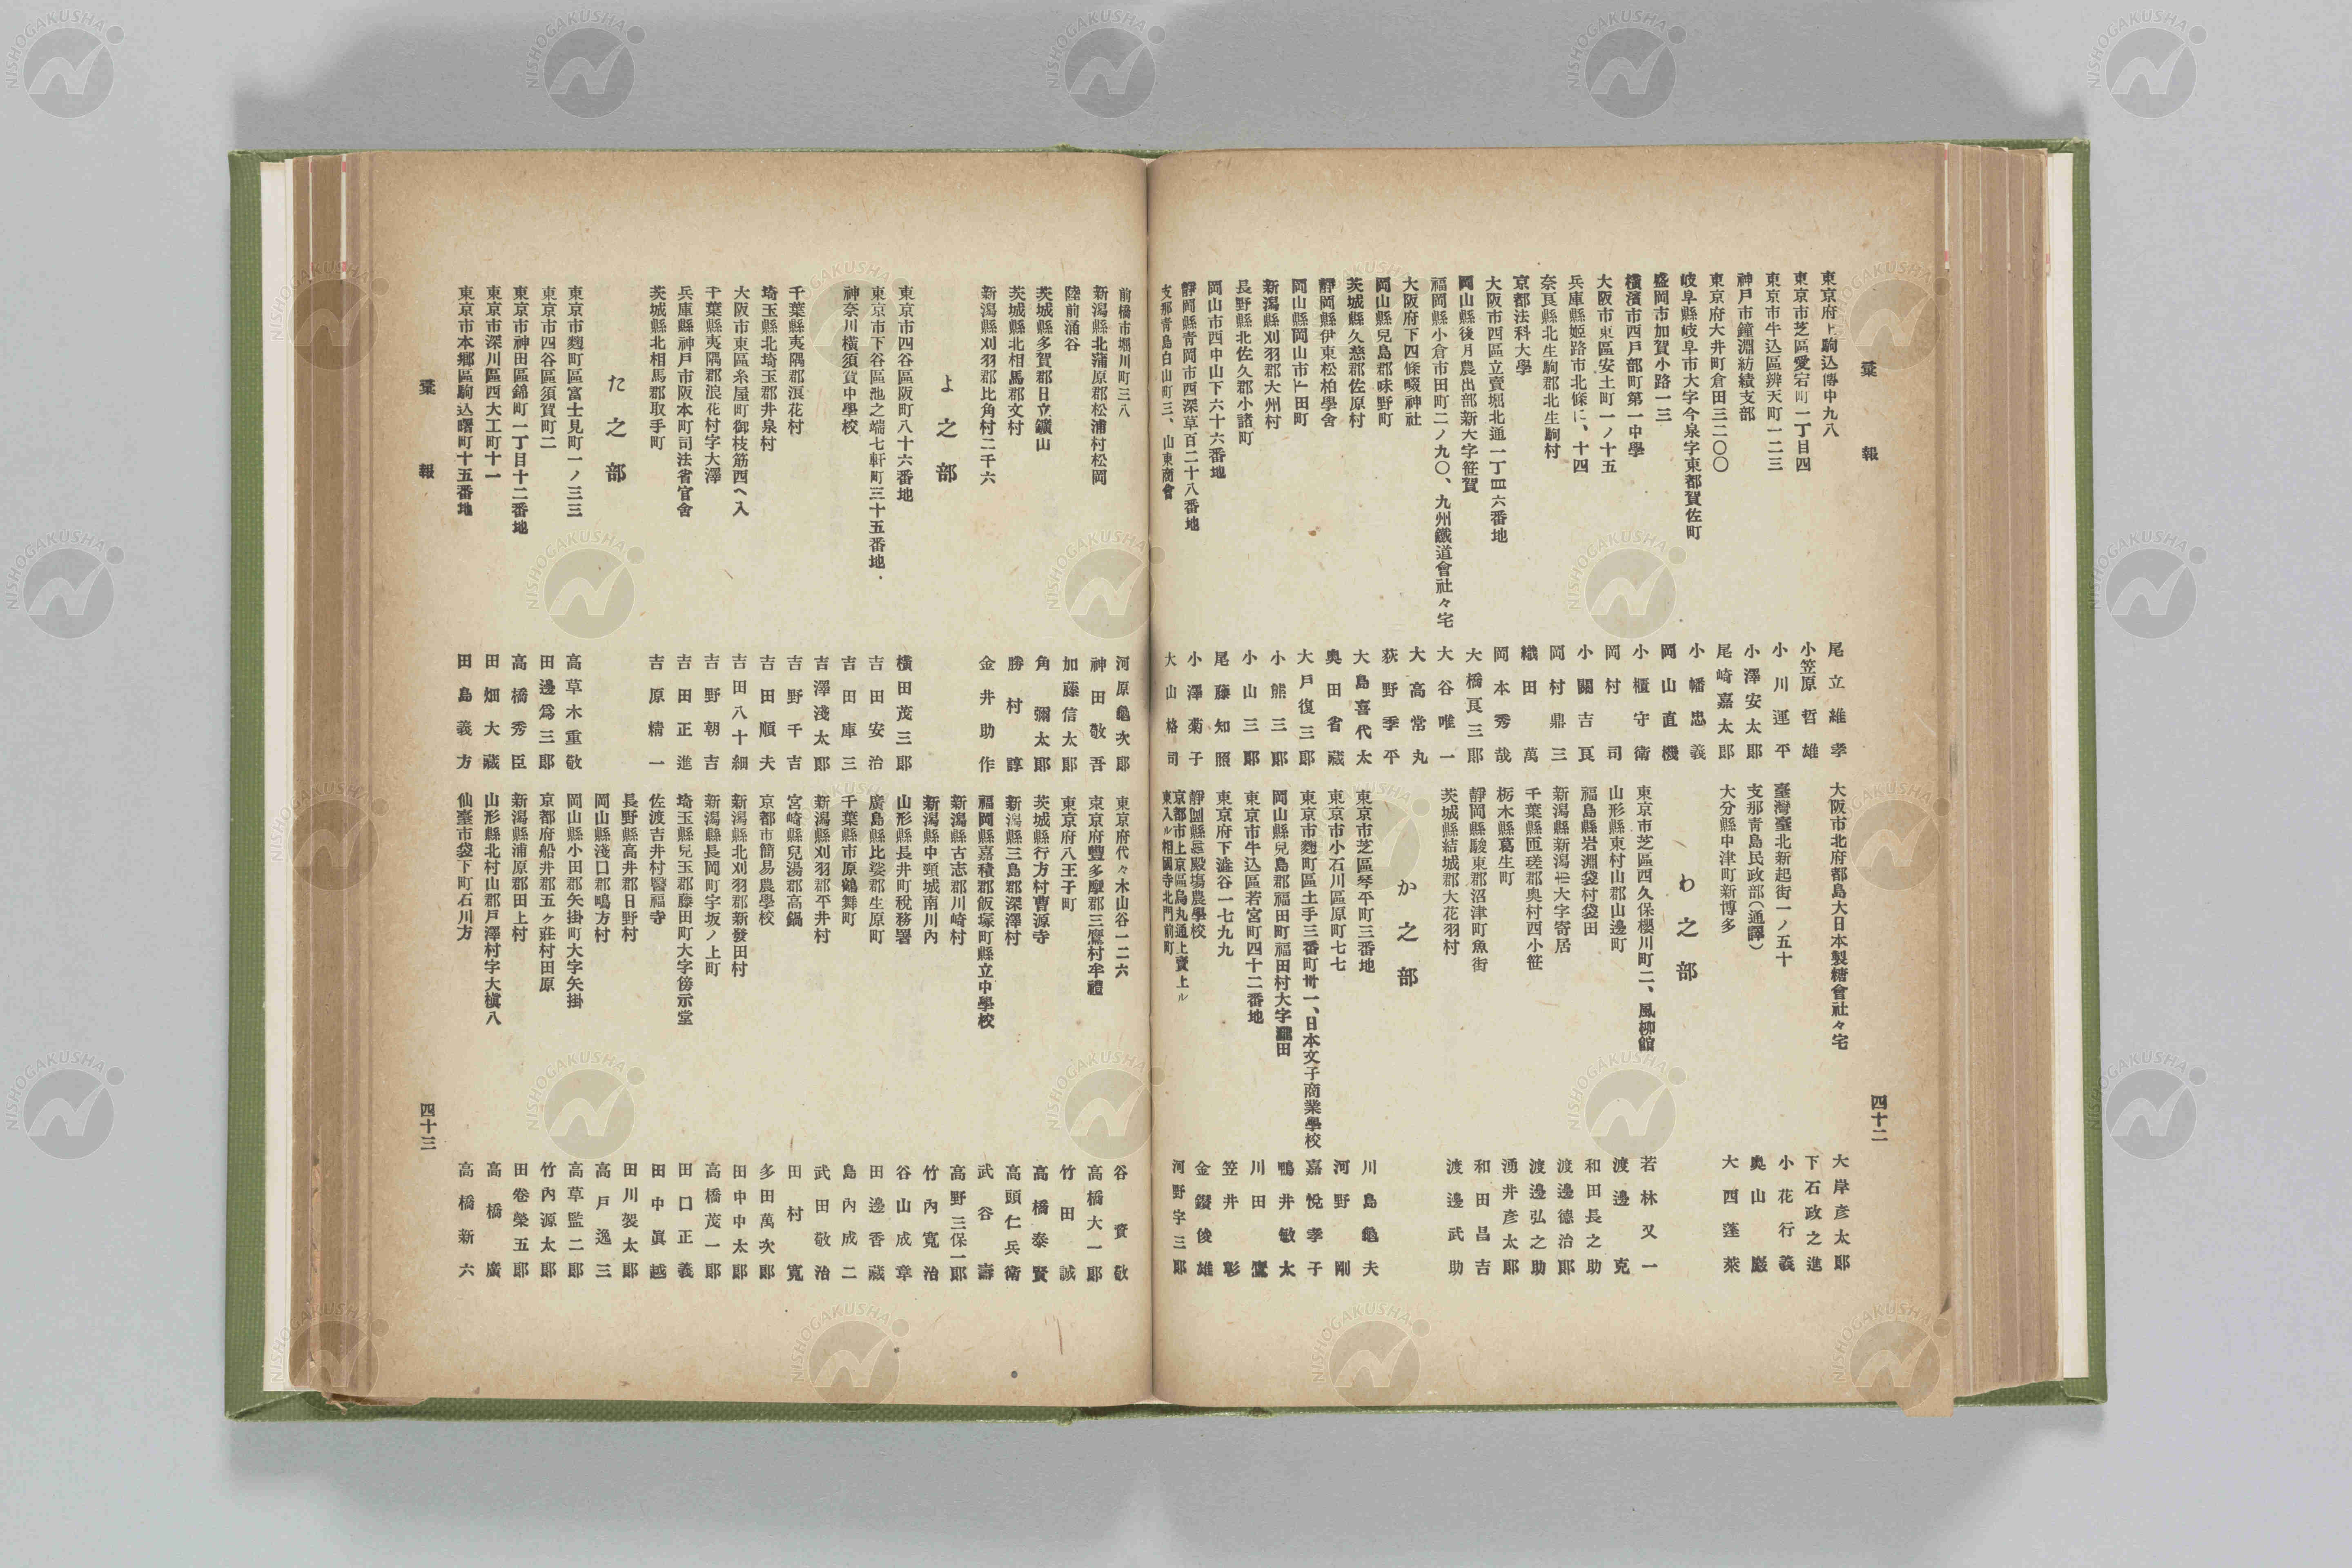 彙報 四十二
東京府上駒込傳中九八 尾立維孝
東京市芝區愛宕町一丁目四 小笠原哲雄
東京市牛込區辨天町一二三 小川運平
神戸市鐘淵紡績支部 小澤安太郎
東京府大井町倉田三二〇〇 尾崎嘉太郎
岐阜縣岐阜市大字今泉字東都賀佐町 小幡忠義
盛岡市加賀小路一三 岡山直機
横濱市西戸部町第一中學 小櫃守衛
大阪市東區安土町一ノ十五 岡村司
兵庫縣姫路市北條に、十四 小關吉良
奈良縣北生駒郡北生駒村 岡村鼎三
京都法科大學 織田萬
大阪市西區立賣堀北通一丁四六番地 岡本秀哉
岡山縣後月農出部新大字笹賀 大橋良三郎
福岡縣小倉市田町二ノ九〇、九州鐵道會社々宅 大谷唯一
大阪府下四條畷神社 大高常丸
岡山縣兒島郡味野町 荻野季平
茨城縣久慈郡佐原村 大島喜代太
靜岡縣伊東松柏學舍 奥田省藏
岡山縣岡山市上田町 大戸復三郎
新潟縣刈羽郡大州村 小熊三郎
長野縣北佐久郡小諸町 小山三郎
岡山市西中山下六十六番地 尾藤知照
靜岡縣靑岡市西深草百二十八番地 小澤菊子
支那青島白山町三、山東商會 大山格司
大阪市北府都島大日本製糖會社々宅 大岸彦太郎
下石政之進
臺灣臺北新起街一ノ五十 小花行義
支那青島民政部(通譯) 奥山巌
大分縣中津町新博多 大西蓬萊
わ之部
東京市芝區西久保櫻川町二、風柳館 若林又一
山形縣東村山郡山邊町 渡邊克
福島縣岩淵袋村袋田 和田長之助
新潟縣新潟大字寄居 渡邊德治郎
千葉縣匝瑳郡奥村西小笹 渡邊弘之助
栃木縣葛生町 湧井彦太郎
靜岡縣駿東郡沼津町魚街 和田昌吉
茨城縣結城郡大花羽村 渡邊武助
か之部
東京市芝區琴平町三番地 川島亀夫
東京市小石川區原町七七 河野剛
東京市麹町區土手三番町卅一、日本女子商業學校 嘉悦孝子
岡山縣兒島郡福田町福田村大字福田 鴨井敏太
東京市牛込區若宮町四十二番地 川田鷹
東京府下澁谷一七九九 笠井彰
靜岡縣殿塲農學校 金鑚俊雄
京都市上京區烏丸通上賣上ル東入ル相國寺北門前町 河野宇三郎
前橋市堀川町三八 河原亀次郎
新潟縣北蒲原郡松浦村松岡 神田敬吾
陸前涌谷 加藤信太郎
茨城縣多賀郡日立鑛山 角彌太郎
茨城縣北相馬郡文村 勝村諄
新潟縣刈羽郡比角村二千六 金井助作
よ之部
東京市四谷區阪町八十六番地 横田茂三郎
東京市下谷區池之端七軒町三十五番地 吉田安治
神奈川横須賀中學校 吉田庫三
吉澤淺太郎
千葉縣夷隅郡浪花村 吉野千吉
埼玉縣北埼玉郡井泉村 吉田順夫
大阪市東區糸屋町御枝筋西へ入 吉田八十細
千葉縣夷隅郡浪花村字大澤 吉野朝吉
兵庫縣神戸市阪本町司法省官舍 吉田正進
茨城縣北相馬郡取手町 吉原精一
た之部
東京市麹町區富士見町一ノ三三 高草木重敬
東京市四谷區須賀町二 田邊爲三郎
東京市神田區錦町一丁目十二番地 高橋秀臣
東京市深川區西大工町十一 田畑大藏
東京市本郷區駒込曙町十五番地 田島義方
東京府代々木山谷一二六 谷資敬
東京府豐多摩郡三鷹村牟禮 高橋大一郎
東京府八王子町 竹田誠
茨城縣行方村曹源寺 高橋泰賢
新潟縣三島郡深澤村 高頭仁兵衛
福岡縣嘉穂郡飯塚町縣立中學校 武谷壽
新潟縣古志郡川崎村 高野三保一郎
新潟縣中頸城南川内 竹内寛治
山形縣長井町税務署 谷山成章
廣島縣比娑郡生原町 田邊香藏
千葉縣市原鶴舞町 島内成二
新潟縣刈羽郡平井村 武田敬治
宮崎縣兒湯郡高鍋 田村寛
京都市簡易農學校 多田萬次郎
新潟縣北刈羽郡新發田村 田中中太郎
新潟縣長岡町字坂ノ上町 高橋茂一郎
埼玉縣兒玉郡藤田町大字傍示堂 田口正義
佐渡吉井村醫福寺 田中眞越
長野縣高井郡日野村 田川袈太郎
岡山縣淺口郡鴨方村 高戸逸三
岡山縣小田郡矢掛町大字矢掛 高草監二郎
京都府船井郡五ヶ莊村田原 竹内源太郎
新潟縣浦原郡田上村 田卷榮五郎
山形縣北村山郡戸澤村字大槇八 高橋廣
仙臺市袋下町石川方 高橋新六
彙報 四十三